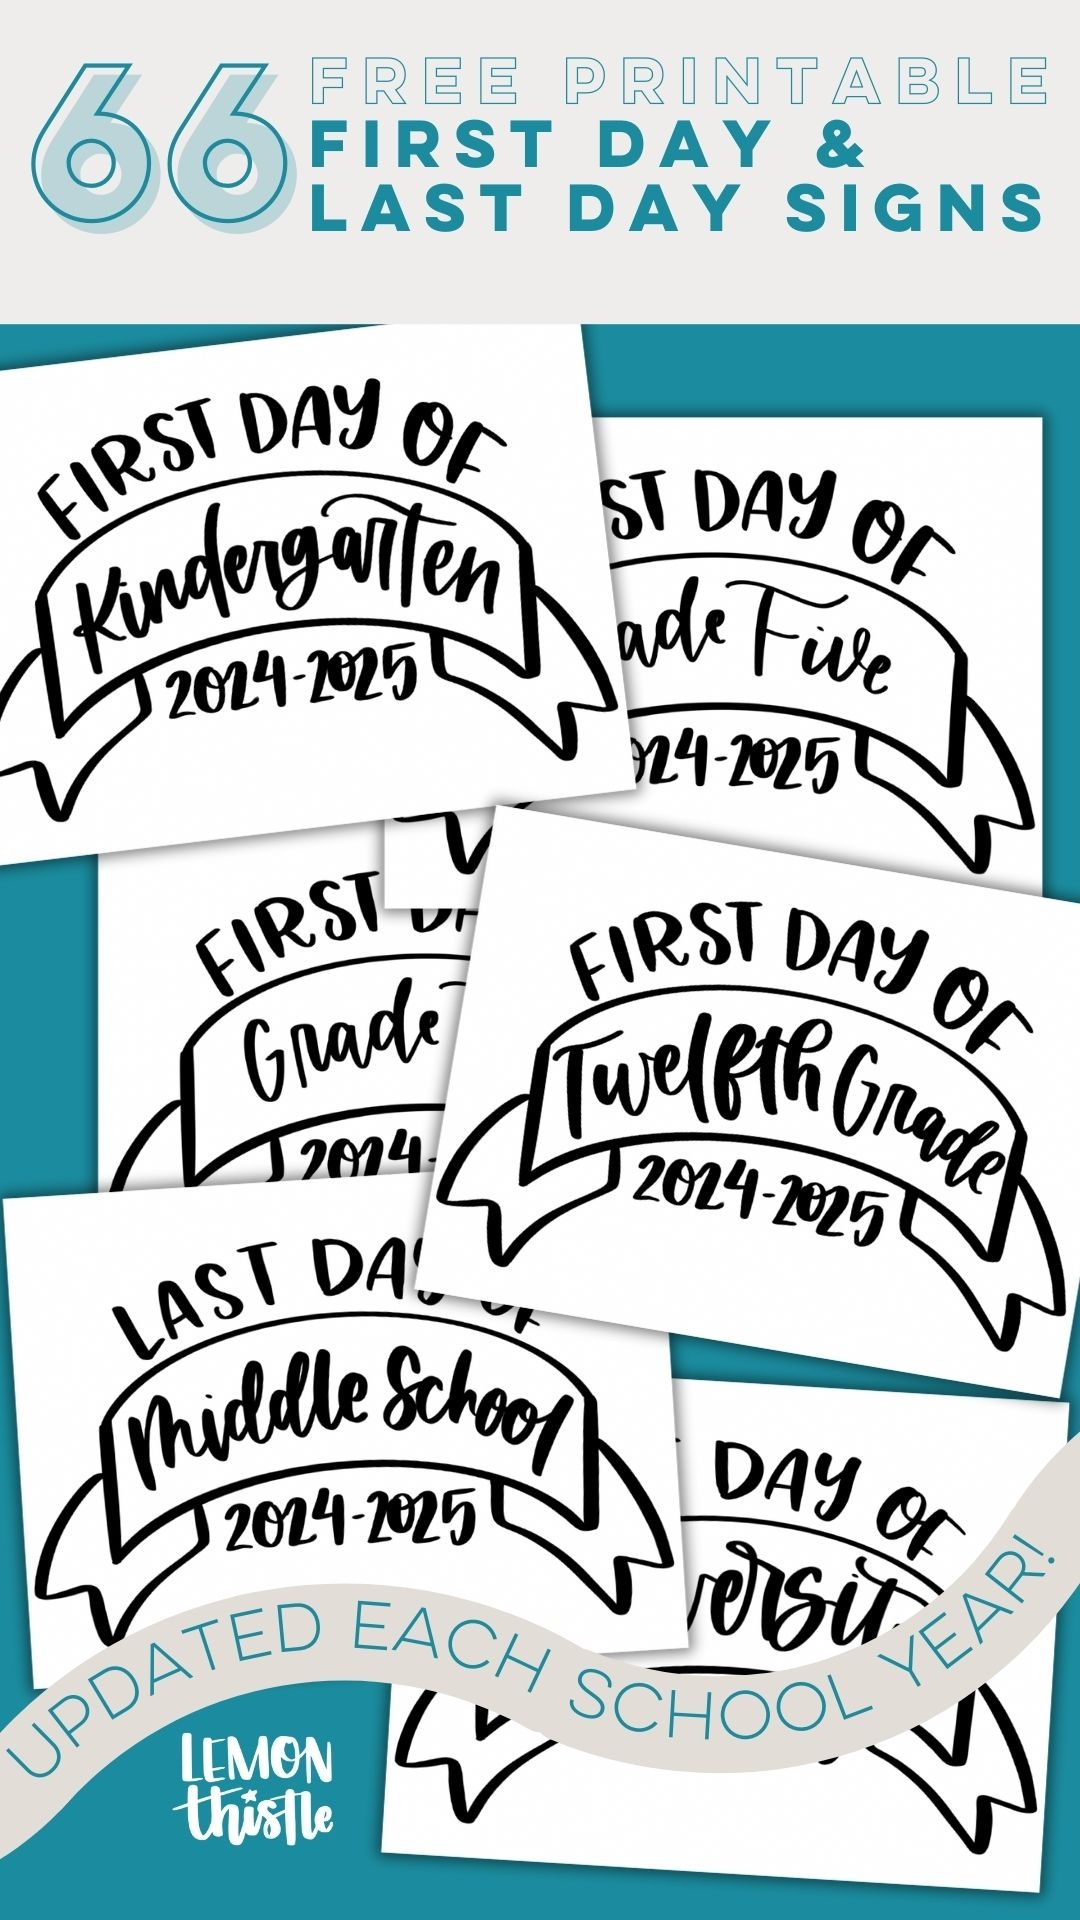 66
FREE PRINTABLE
FIRST DAY &
LAST DAY SIGNS
FIRST DAY OF
Kindergarten
2024-2025
DAY OF
Five
2025
FIRST
Grade
2024-
FIRST DAY OF
Twelfth Grade
2024-2025
LAST DAY OF
Middle School
2024-2025
DAY OF
UPDATED EACH SCHOOL YEAR!
LEMON
thistle